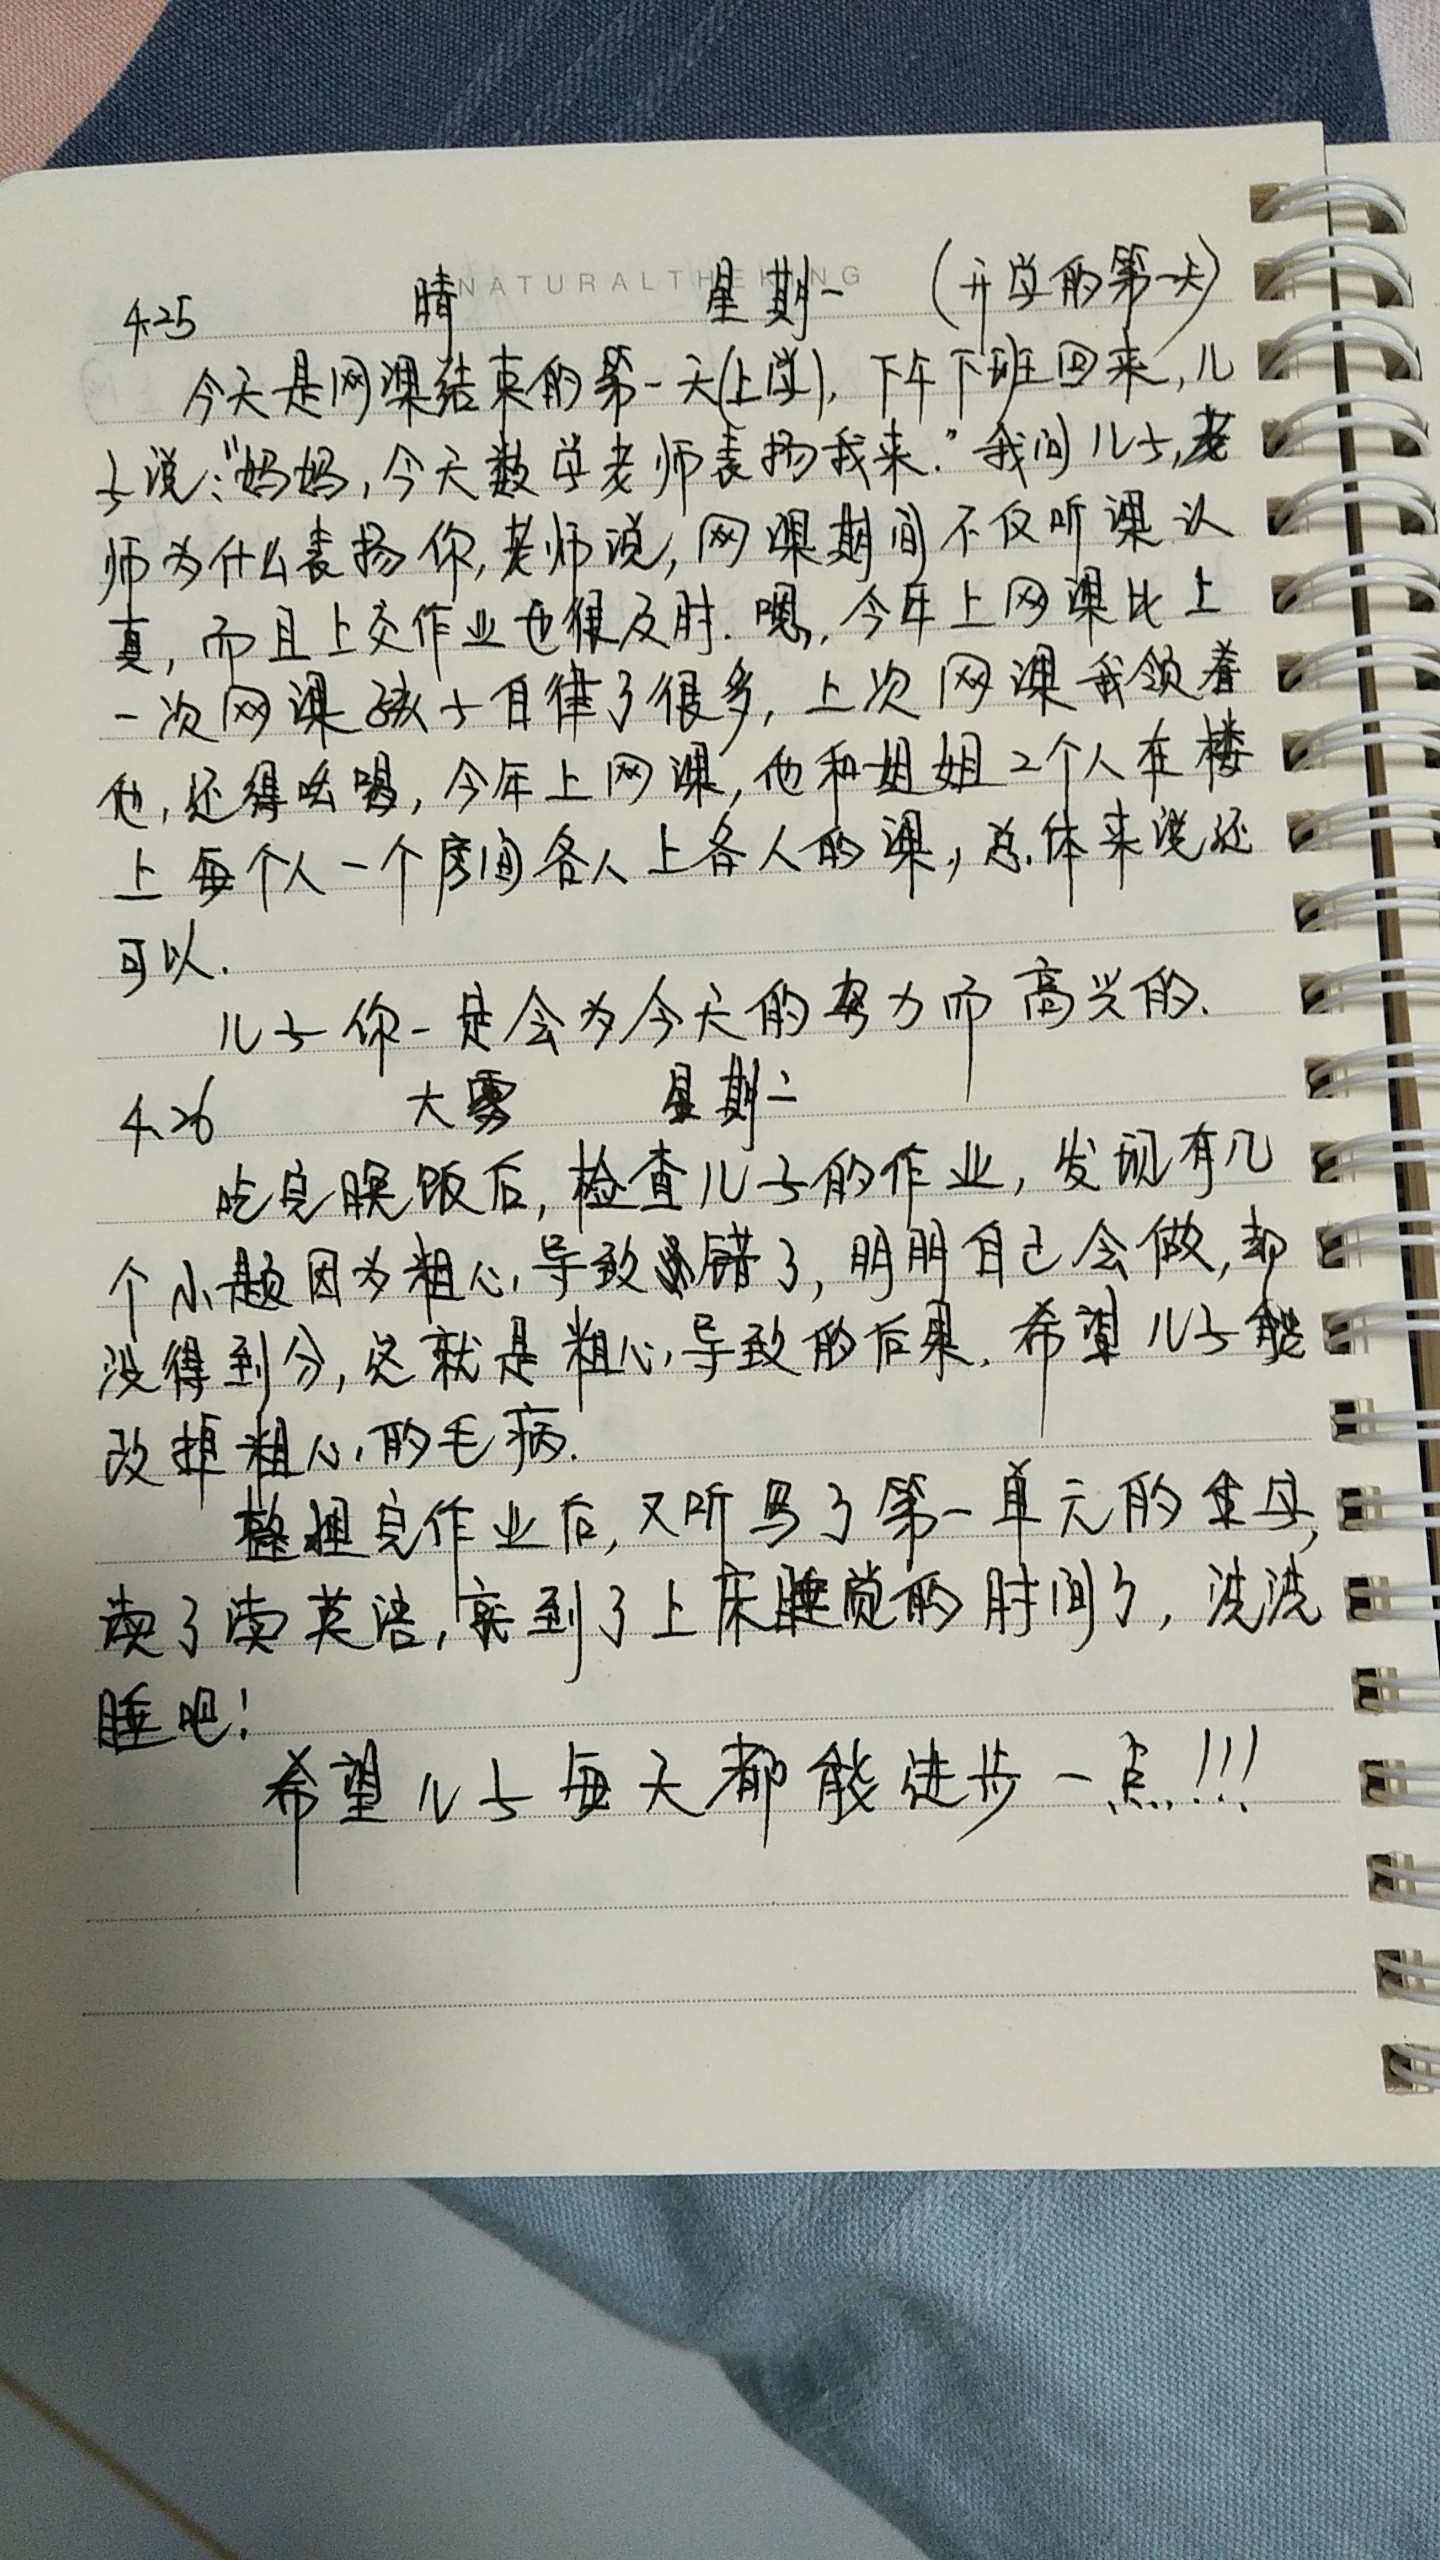 NATURALTHEKING
4.25 晴 星期一 (开学的第一天)
今天是网课结束的第一天(上学),下午下班回来,儿
子说:"妈妈,今天数学老师表扬我来."我问儿子,老
师为什么表扬你,老师说,网课期间不仅听课认
真,而且上交作业也很及时.嗯,今年上网课比上
一次网课孩子自律了很多,上次网课我领着
他,还得吆喝,今年上网课,他和姐姐2个人在楼
上每个人一个房间各人上各人的课,总体来说还
可以.
儿子你一定会为今天的努力而高兴的.
4.26 大雾 星期二
吃完晚饭后,检查儿子的作业,发现有几
个小题因为粗心导致错了,明明自己会做,却
没得到分,这就是粗心导致的后果.希望儿子能
改掉粗心的毛病.
整理完作业后,又听写了第一单元的生字,
读了读英语,就到了上床睡觉的时间了,洗洗
睡吧!
希望儿子每天都能进步一点!!!